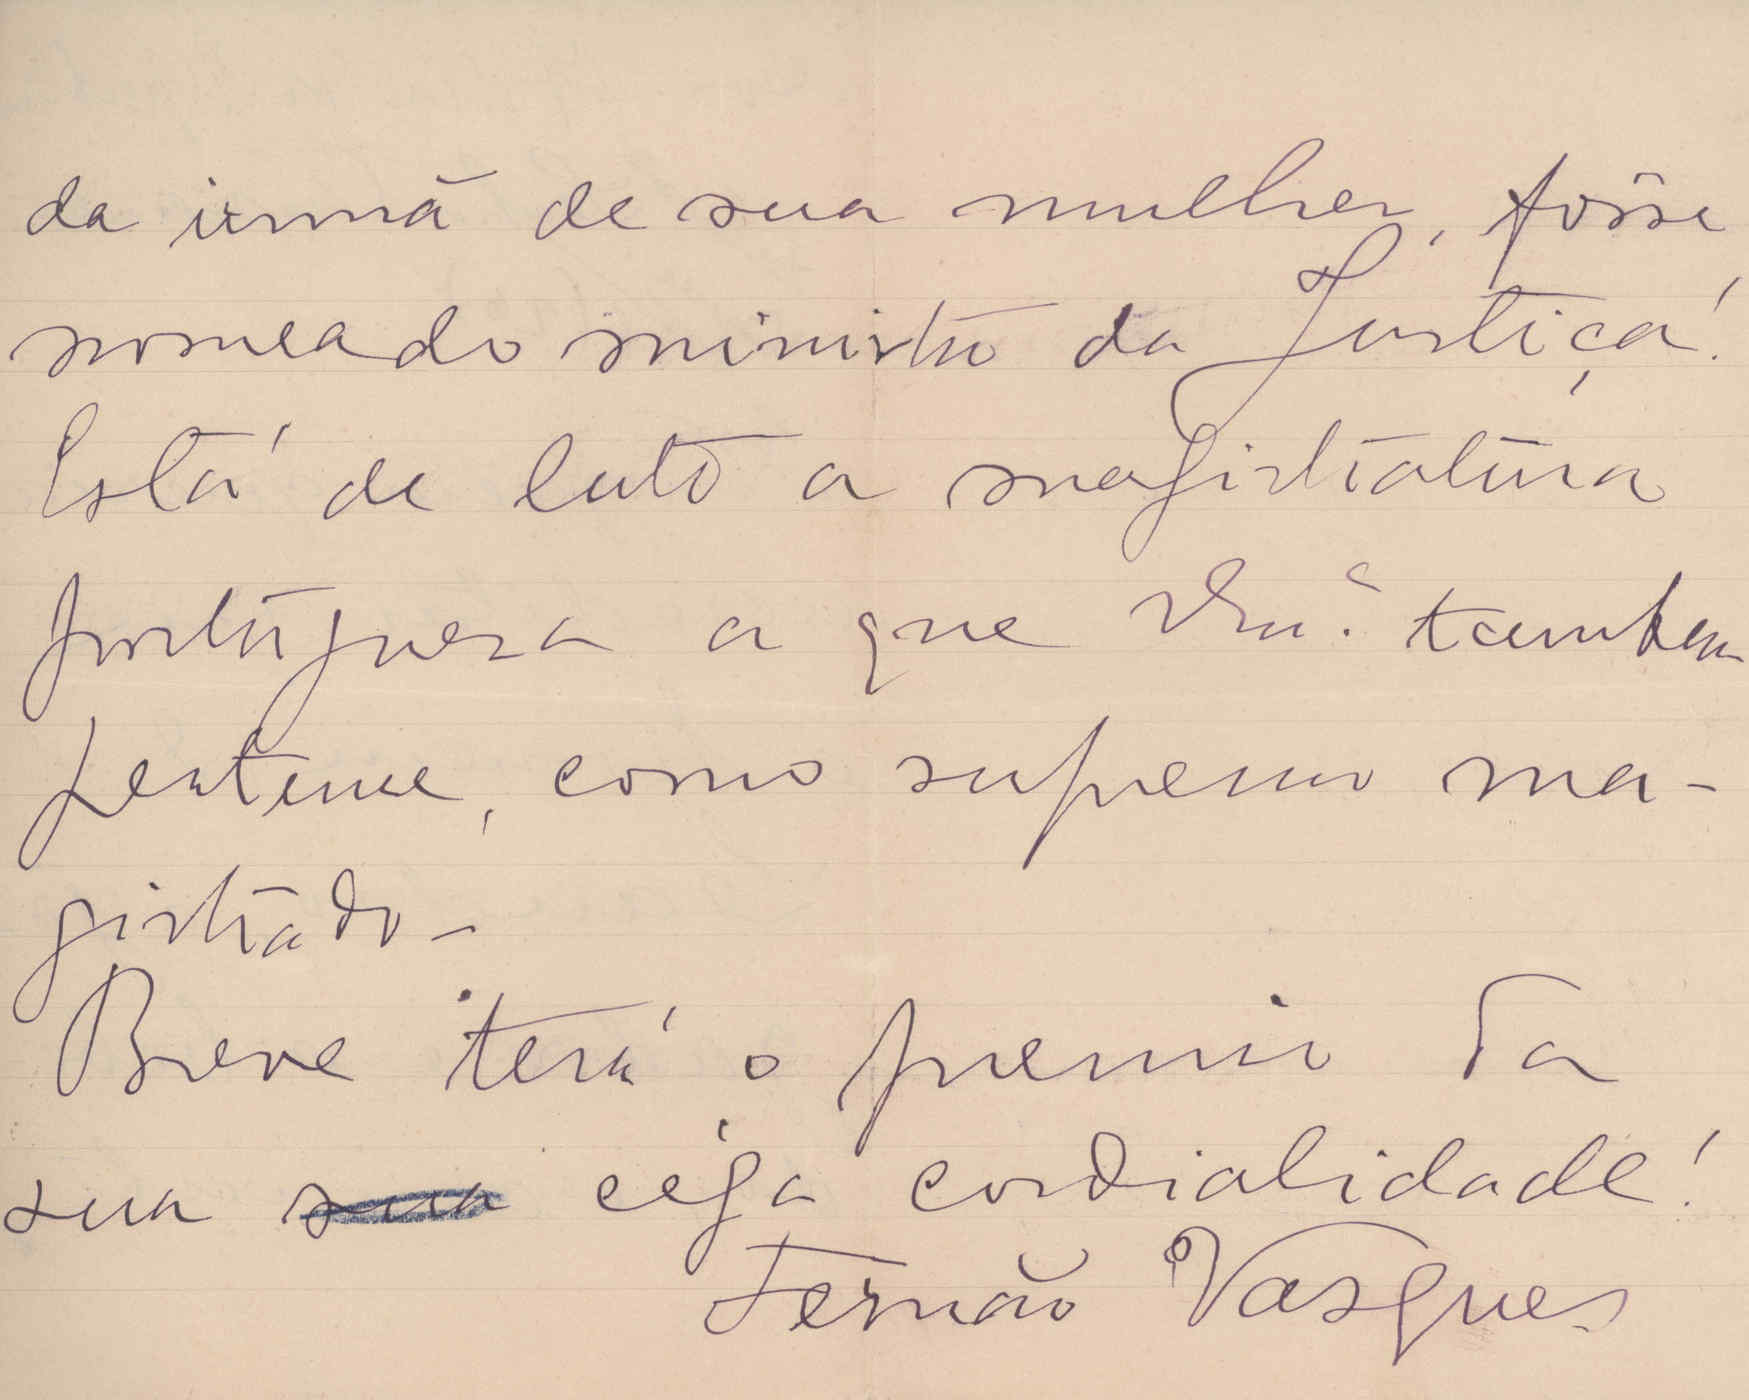 da irmã de sua mulher, fôsse
nomeado ministro da Justiça!
Está de luto a magistratura
portuguesa a que tambem
pertence, como supremo ma-
gistrado -
Breve terá o premio da
sua sua céga cordialidade!
Fernão Vasques